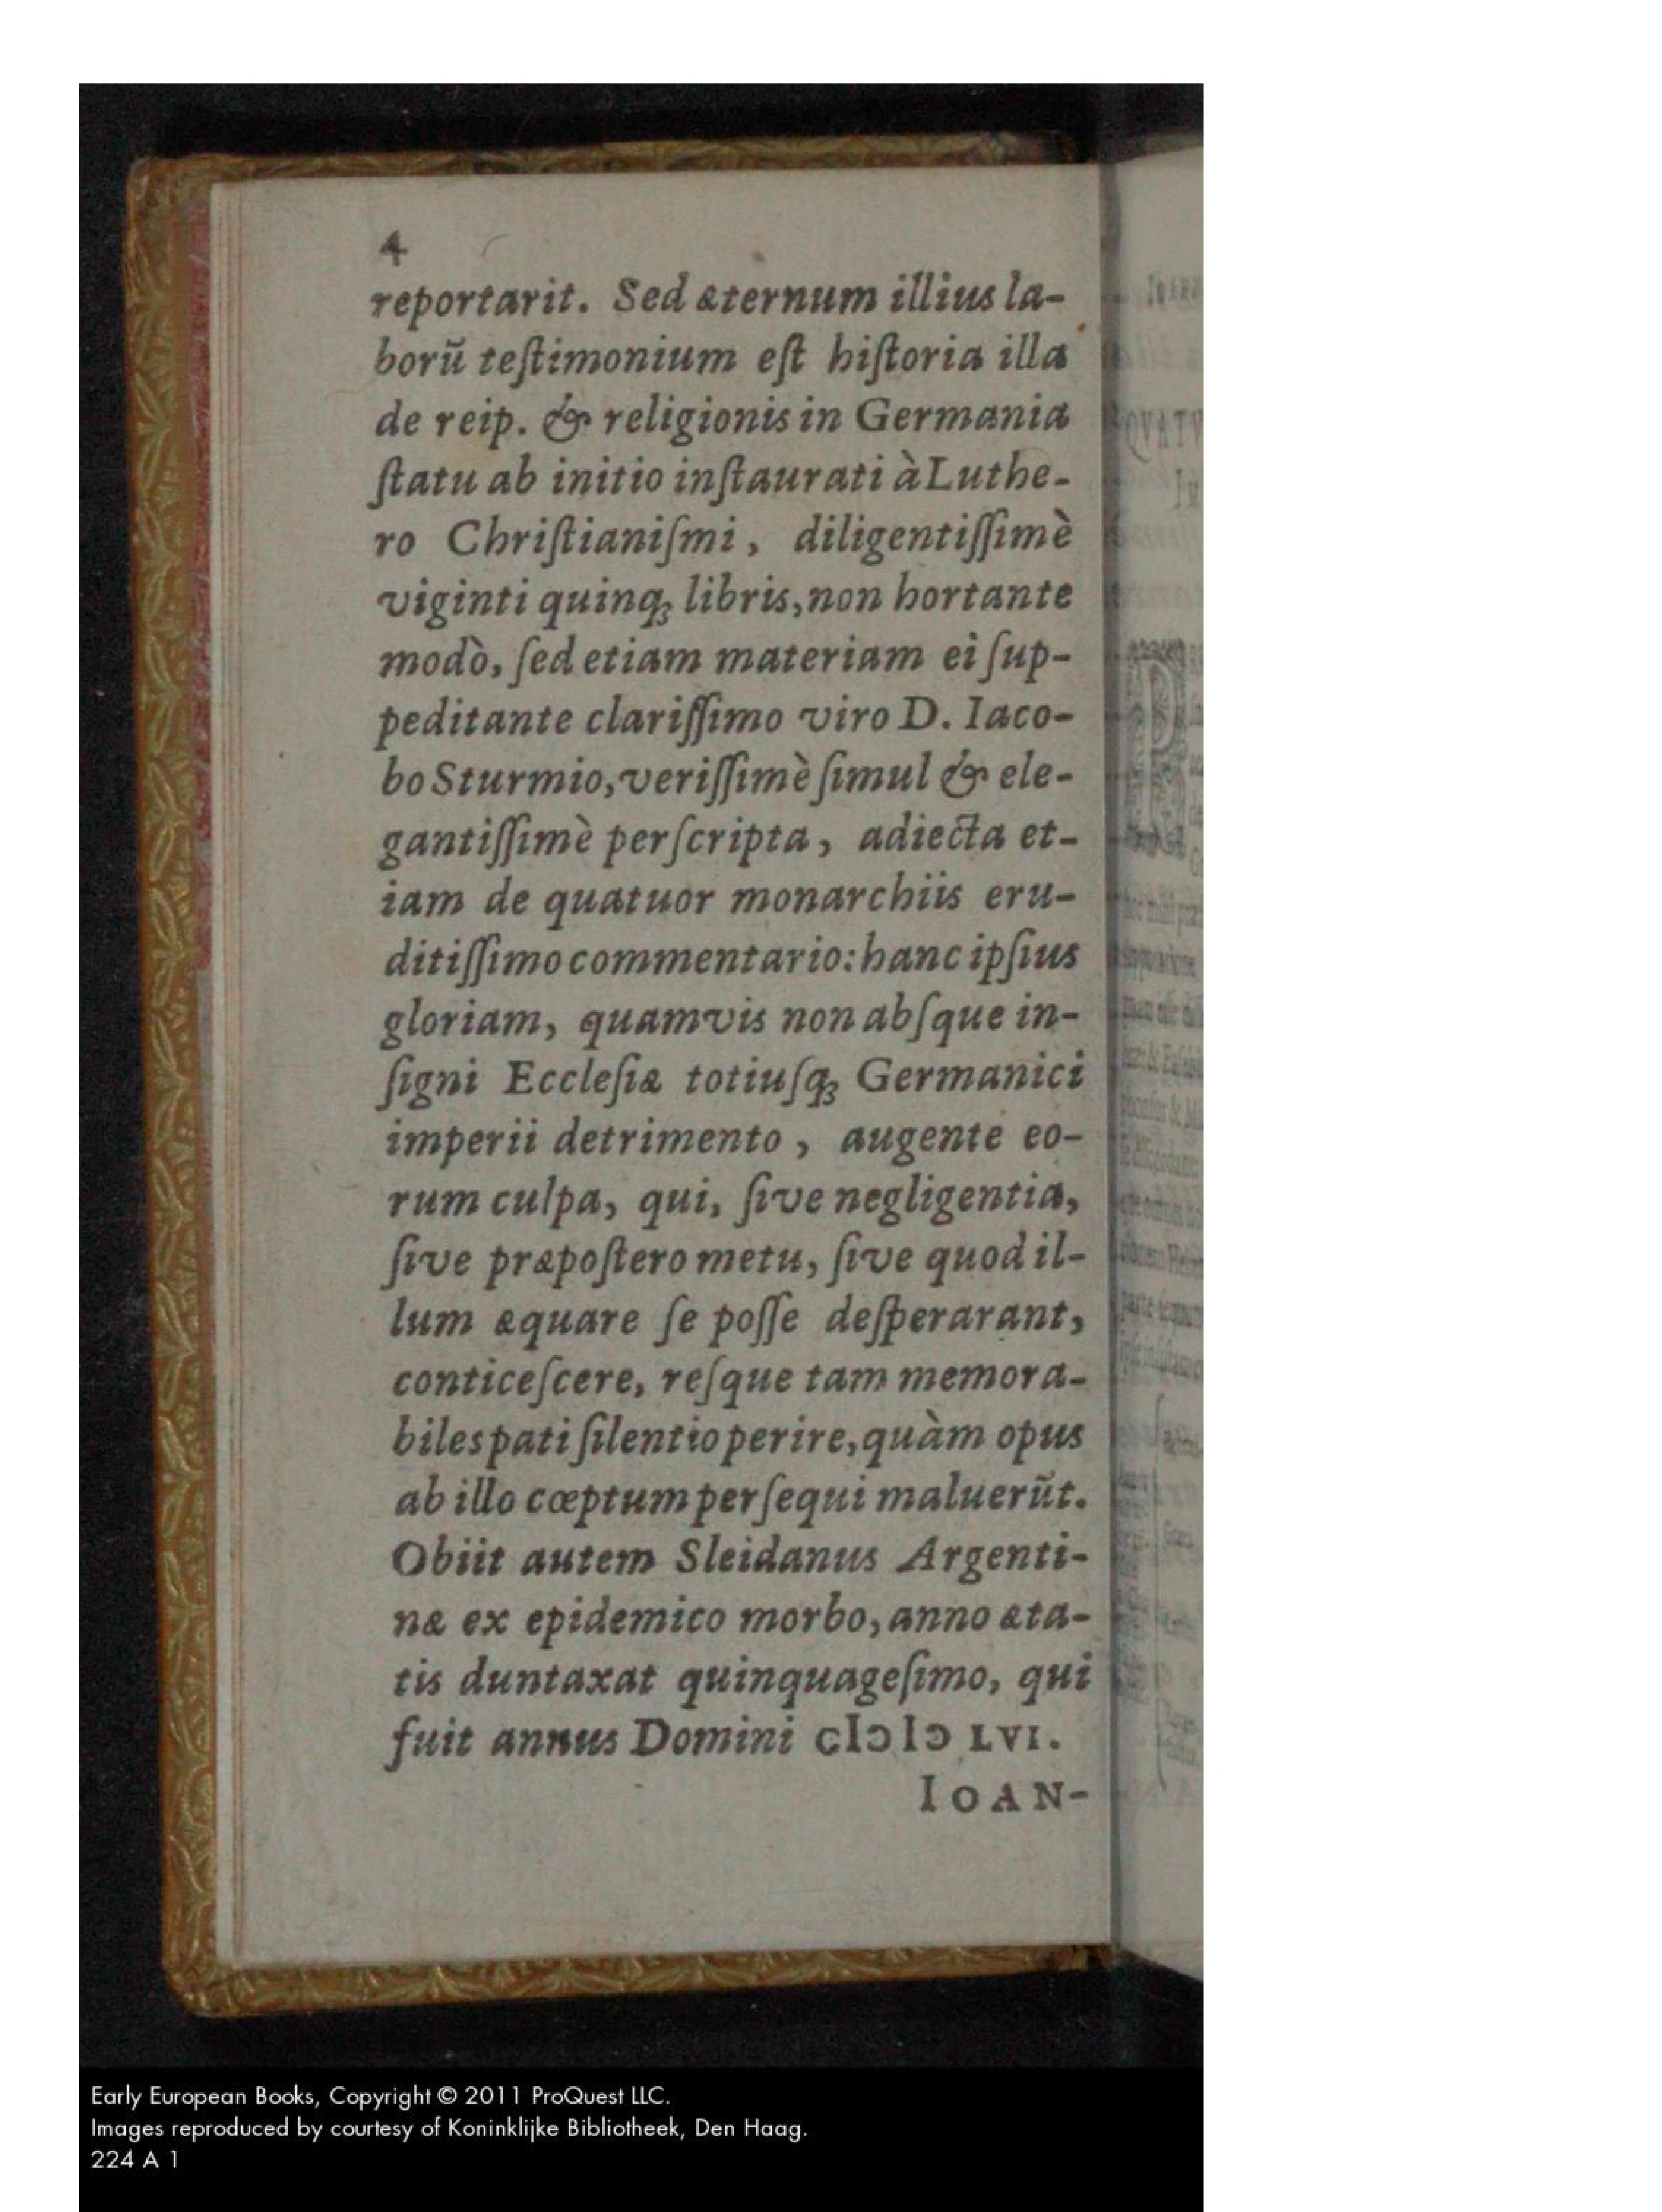 4
reportarit. Sed æternum illius la-
borũ teſtimonium eſt hiſtoria illa
de reip. & religionis in Germania
ſtatu ab initio inſtaurati à Luthe-
ro Chriſtianiſmi, diligentiſſimè
viginti quinq; libris, non hortante
modò, ſed etiam materiam ei ſup-
peditante clariſſimo viro D. Iaco-
bo Sturmio, veriſſimè ſimul & ele-
gantiſſimè perſcripta, adiecta et-
iam de quatuor monarchiis eru-
ditiſſimo commentario: hanc ipſius
gloriam, quamvis non abſque in-
ſigni Eccleſiæ totiuſq; Germanici
imperii detrimento, augente eo-
rum culpa, qui, ſive negligentia,
ſive præpoſtero metu, ſive quod il-
lum æquare ſe poſſe deſperarant,
conticeſcere, reſque tam memora-
biles pati ſilentio perire, quàm opus
ab illo cœptum perſequi maluerũt.
Obiit autem Sleidanus Argenti-
næ ex epidemico morbo, anno æta-
tis duntaxat quinquageſimo, qui
fuit annus Domini cIɔ Iɔ LVI.
IOAN-
Early European Books, Copyright © 2011 ProQuest LLC.
Images reproduced by courtesy of Koninklijke Bibliotheek, Den Haag.
224 A 1